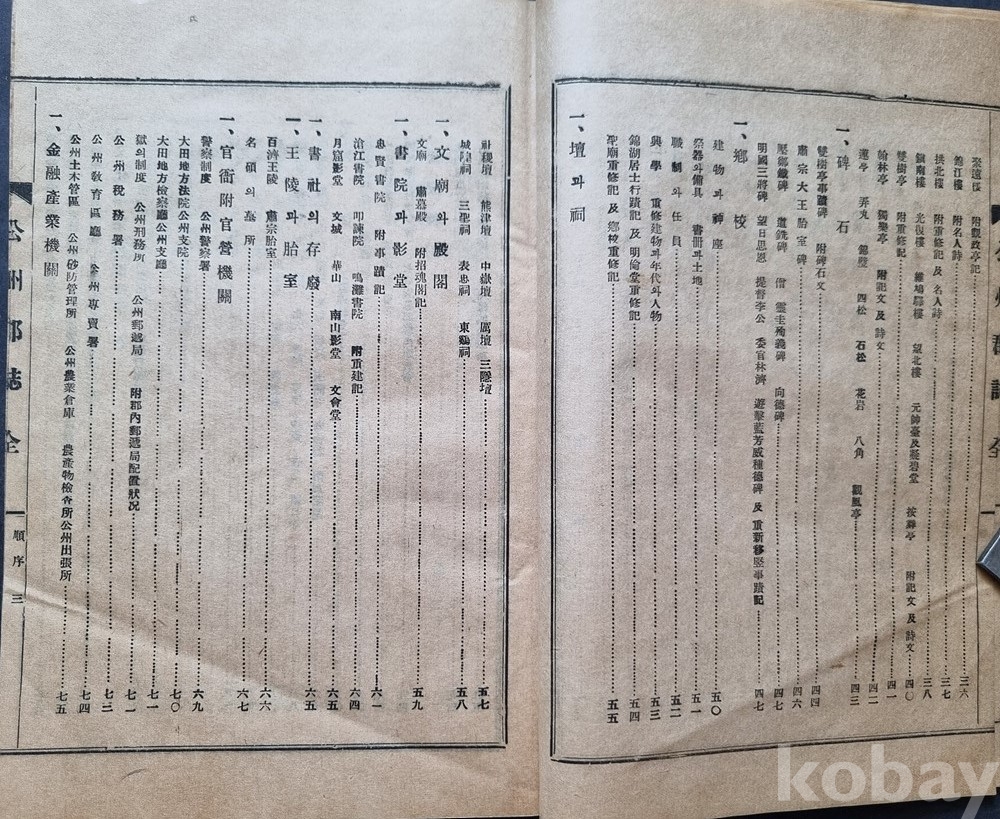 聚遠樓 附觀政亭記
錦江樓 附名人詩 三六
拱北樓 附重修記及名人詩 三七
鎭南樓 光復樓 望北樓 元帥臺及凝碧堂 三八
雙樹亭 附重修記 按舞亭 附記文及詩文 四〇
翰林亭 獨樂亭 附記文及詩文 四一
蓮亭 弄丸 錦壁 四松 石松 花岩 八角 觀風亭 四三
一、碑石
雙樹亭事蹟碑 附碑石文 四四
肅宗大王胎室碑 四六
明國三將碑 望日思恩 提督李公 委官林濟 遊擊藍芳威種德碑 及 重新移竪事蹟記 四七
一、鄕校
建物과神座 五〇
祭器와備具 書册과土地 五一
職制와任員 五二
興學 重修建物과年代와人物 五三
錦湖居士行蹟記及明倫堂重修記 五四
聖廟重修記及鄕校重修記 五五
一、壇과祠
社稷壇 熊津壇 中嶽壇 厲壇 三隱壇 五七
城隍祠 三聖祠 表忠祠 東鷄祠 五八
一、文廟와殿閣
文廟 肅慕殿 附招魂閣記 五九
一、書院과影堂
忠賢書院 附事蹟記 六一
滄江書院 叩諫院 鳴灘書院 附重建記 六四
月窟影堂 文城 華山 南山影堂 文會堂 六五
一、書社의存廢 六五
一、王陵과胎室
百濟王陵 肅宗胎室 六六
名碩의墓所 六七
一、官衙附官營機關
警察制度 公州警察署 六九
大田地方法院公州支院 七〇
大田地方檢察廳公州支廳 七一
獄의制度 公州刑務所 公州郵遞局 附郡內郵遞局配置狀况 七二
公州稅務署 七三
公州敎育區廳 公州專賣署 七四
公州土木管區 公州砂防管理所 公州農業倉庫 農產物檢査所公州出張所 七五
一、金融產業機關
公州郡誌 全 順序 三
kobay